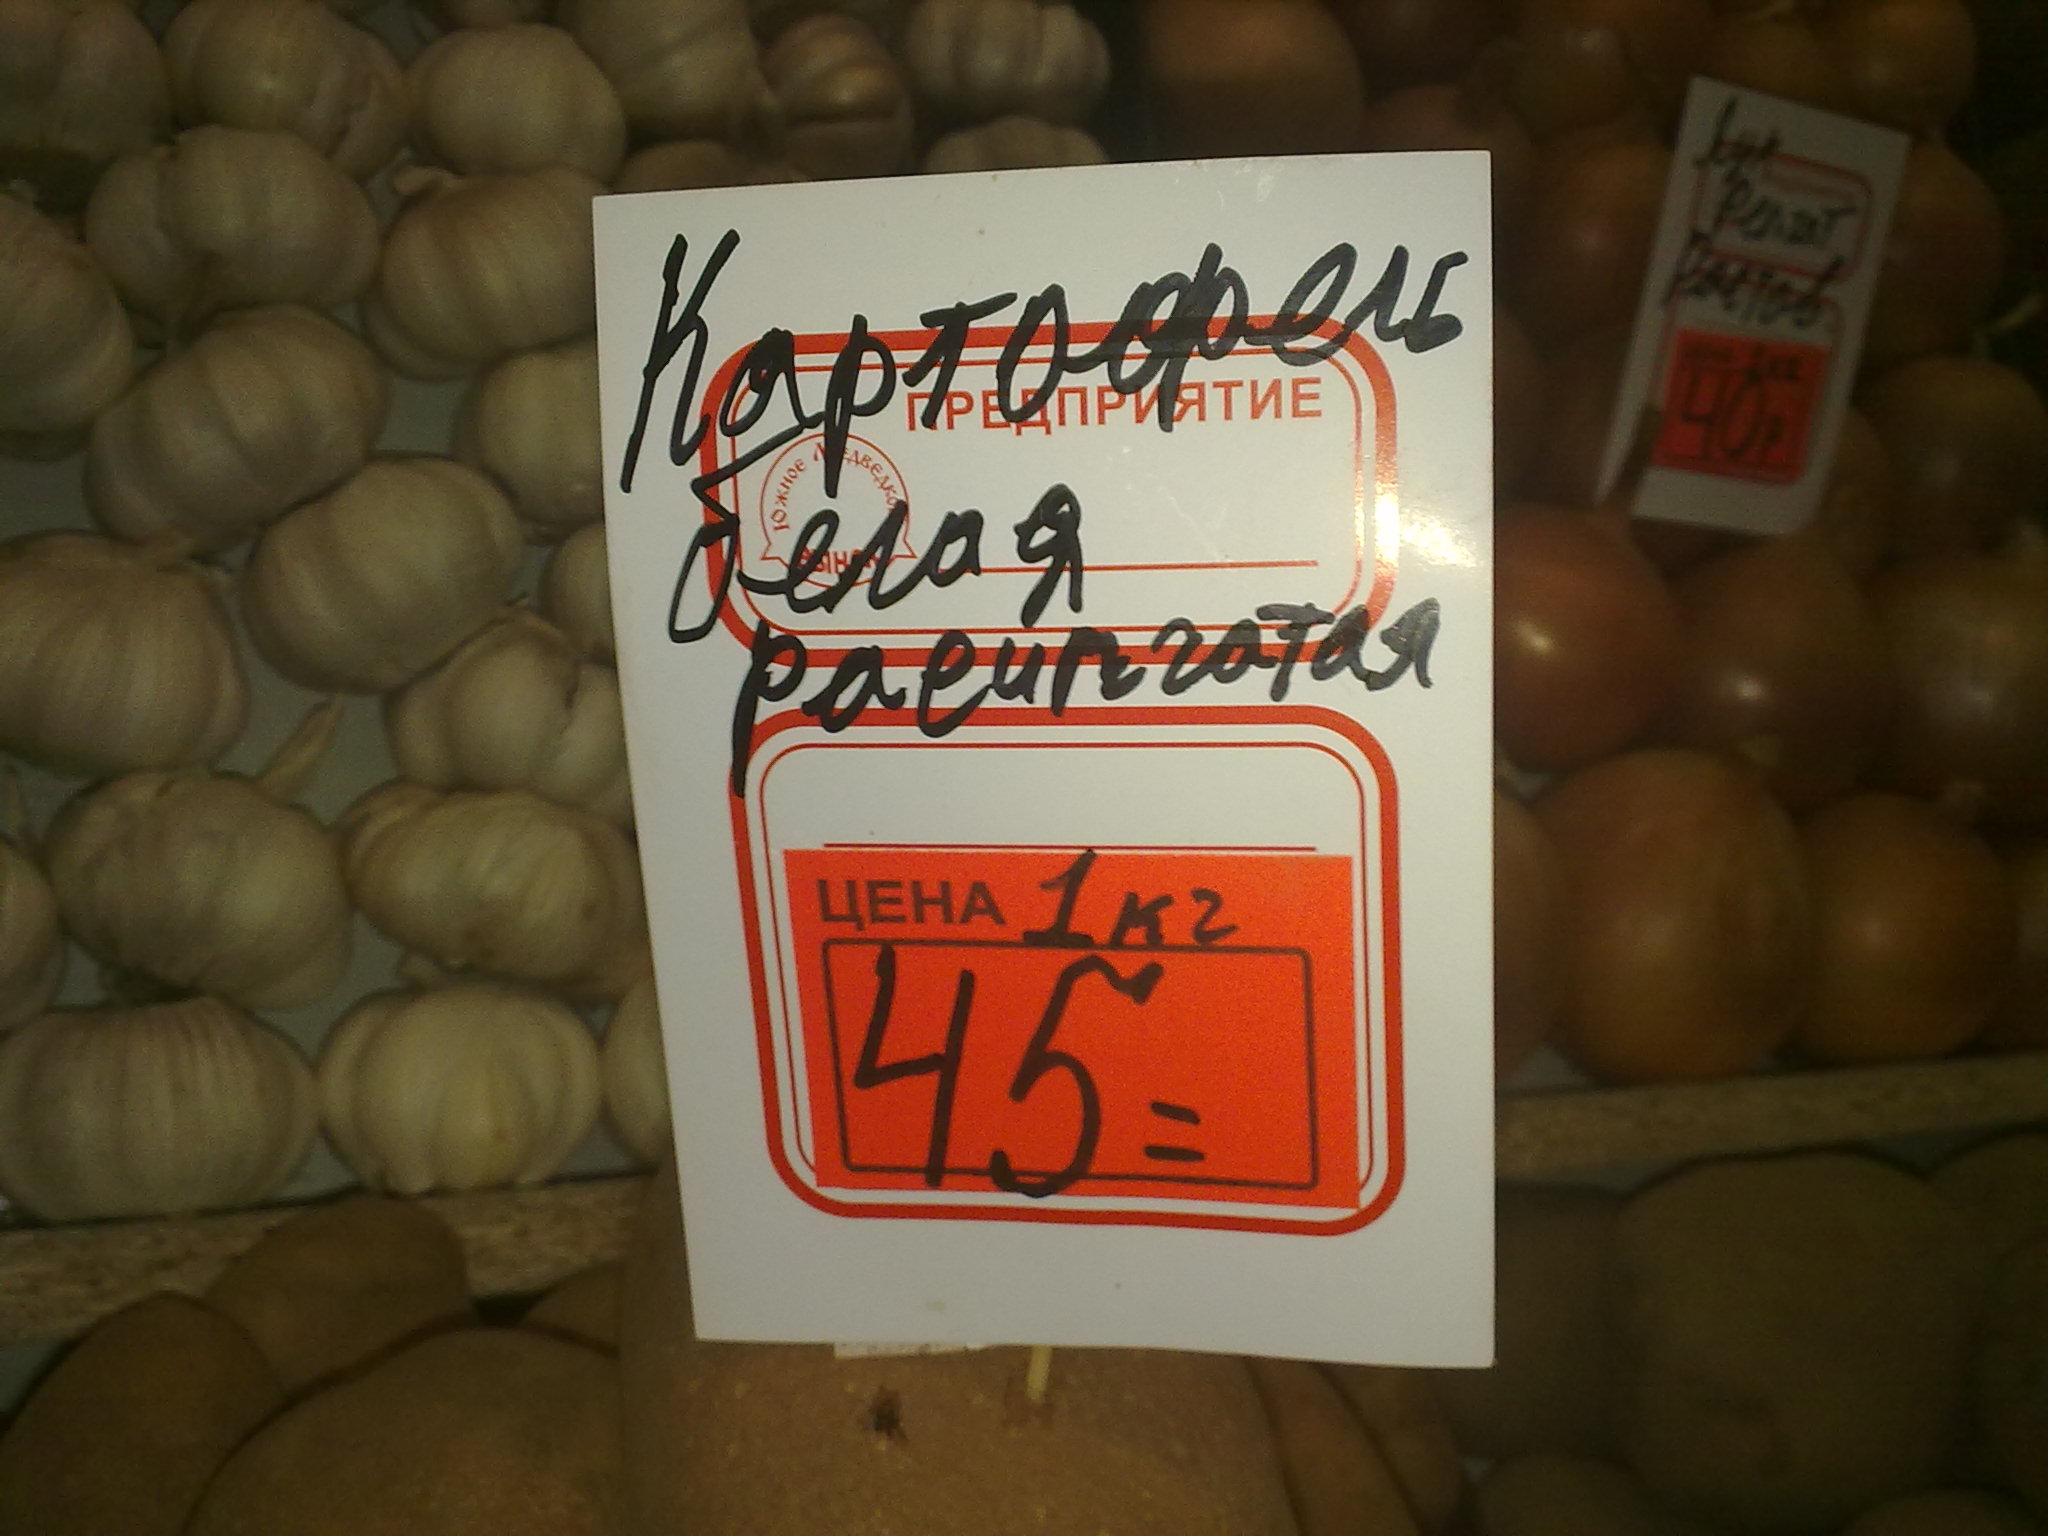 Картофель
ПРЕДПРИЯТИЕ
Южное Медведково
РЫНОК
белая
рассыпчатая
ЦЕНА 1 кг
45=
Лук
Ростов
40р